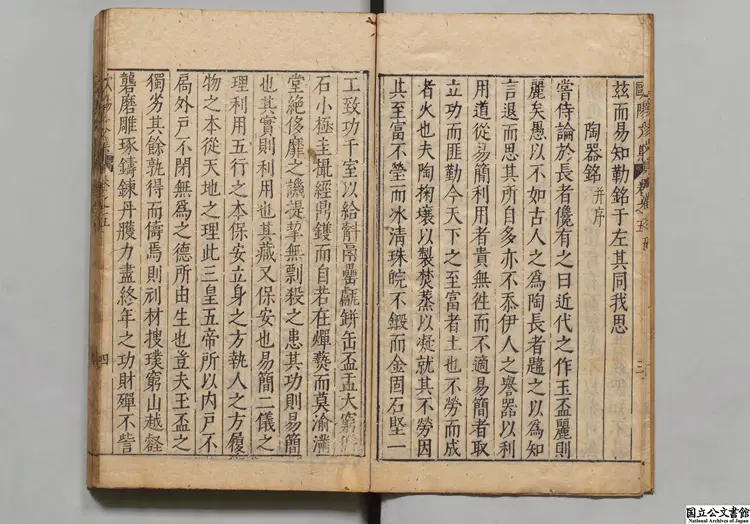 茲而易知勒銘于左其同我思
陶器銘 并序
嘗侍論於長者儳有之曰近代之作玉盃麗則
麗矣愚以不如古人之為陶長者韙之以為知
言退而思其所自多亦不忝伊人之譽器以利
用道從易簡利用者貴無徃而不適易簡者取
立功而匪勤今天下之至富者土也不勞而成
者火也夫陶掬壤以製焚蒸以凝就其不勞因
其至富不瑩而氷清珠皖不鍛而金固石堅一
工致功千室以給甒鬲罍甗缾缶盃盂大窮
石小極圭撮經鼎鑊而自若在燀爇而莫渝滿
堂絶侈靡之譏提挈無剽殺之患其功則易簡
也其實則利用也其藏又保安也易簡二儀之
理利用五行之本保安立身之方執人之方履
物之本從天地之理此三皇五帝所以內戶不
扃外戶不閉無為之德所由生也豈夫玉盃之
獨劣其餘孰得而儔焉則刋材搜璞窮山越壑
礱磨雕琢鑄鍊丹雘力盡終年之功財殫不訾
三
四
国立公文書館
National Archives of Japan